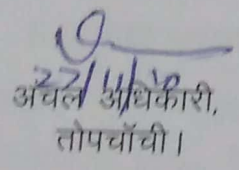 22/11/10
अंचल अधिकारी,
तोपचाँची।